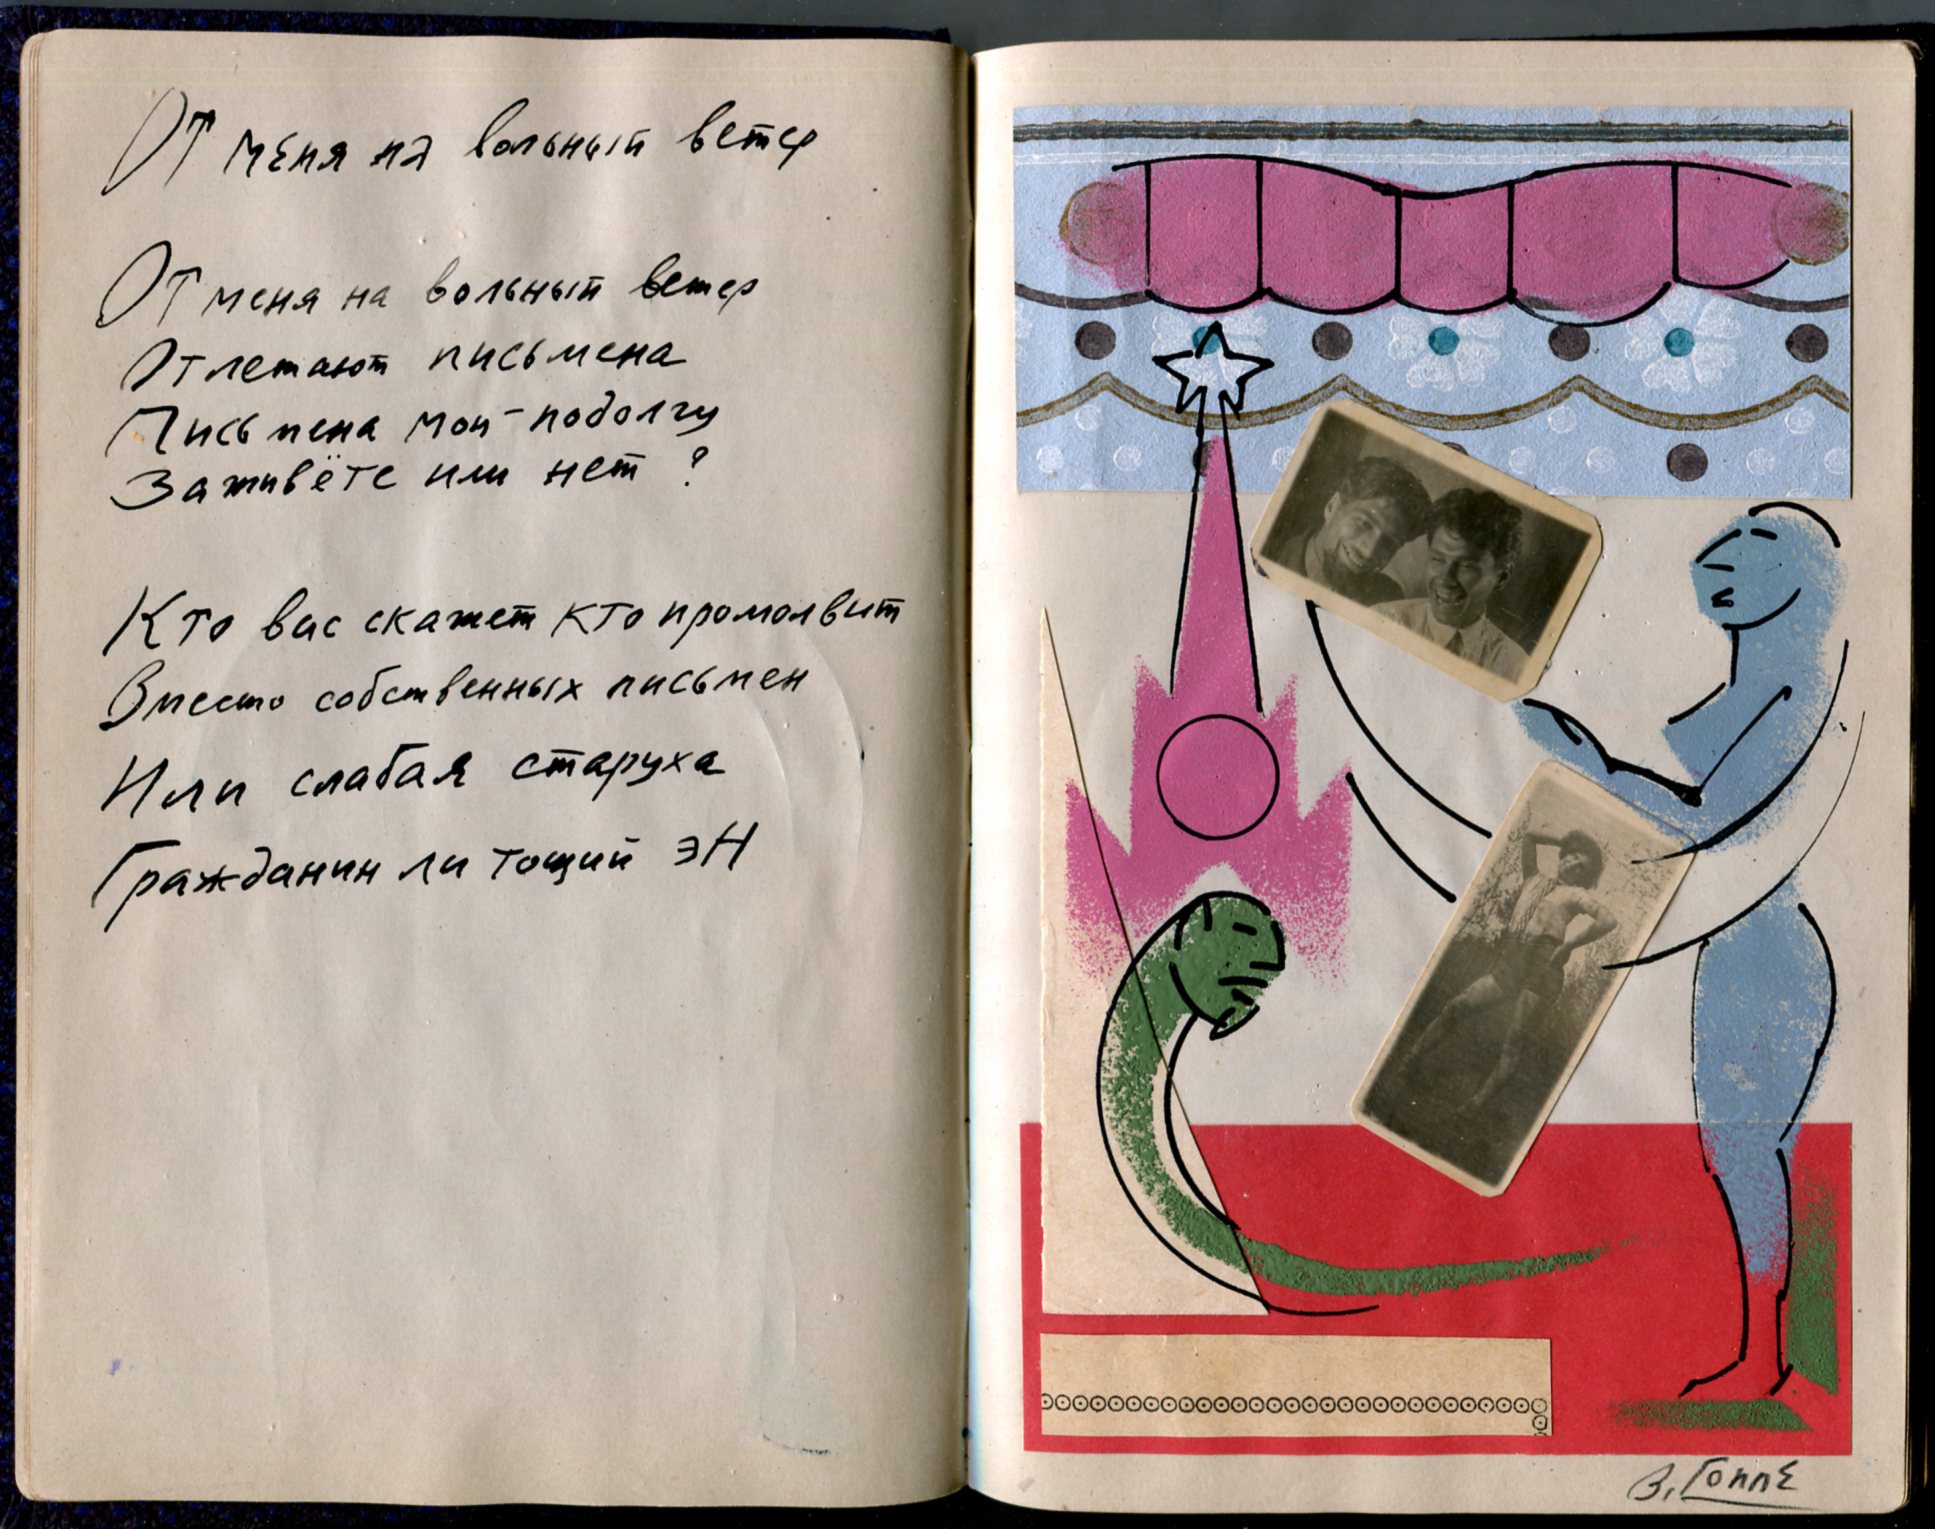 От меня на вольный ветер
От меня на вольный ветер
Отлетают письмена
Письмена мои – подолгу
Заживёте или нет ?
Кто вас скажет кто промолвит
Вместо собственных письмен
Или слабая старуха
Гражданин ли тощий эН
В. Гоппе